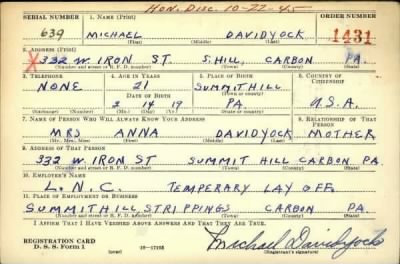 Hon. Disc. 10-22-45
SERIAL NUMBER 1. NAME (Print) ORDER NUMBER
639 MICHAEL DAVIDYOCK 1431
(First) (Middle) (Last)
2. ADDRESS (Print)
X 332 W. IRON ST. S. HILL, CARBON PA.
(Number and street or R. F. D. number) (Town) (County) (State)
3. TELEPHONE 4. AGE IN YEARS 5. PLACE OF BIRTH 6. COUNTRY OF CITIZENSHIP
NONE 21 SUMMIT HILL
DATE OF BIRTH (Town or county)
2 14 19 PA. U.S.A.
(Exchange) (Number) (Mo.) (Day) (Yr.) (State or country)
7. NAME OF PERSON WHO WILL ALWAYS KNOW YOUR ADDRESS 8. RELATIONSHIP OF THAT PERSON
MRS ANNA DAVIDYOCK MOTHER
(Mr., Mrs., Miss) (First) (Middle) (Last)
9. ADDRESS OF THAT PERSON
332 W. IRON ST SUMMIT HILL CARBON PA.
(Number and street or R. F. D. number) (Town) (County) (State)
10. EMPLOYER'S NAME
L. N. C. TEMPERARY LAY OFF.
11. PLACE OF EMPLOYMENT OR BUSINESS
SUMMIT HILL STRIPPINGS CARBON PA
(Number and street or R. F. D. number) (Town) (County) (State)
I AFFIRM THAT I HAVE VERIFIED ABOVE ANSWERS AND THAT THEY ARE TRUE.
REGISTRATION CARD
D. S. S. Form 1 (over) 16-17105 Michael Davidyock
(Registrant's signature)